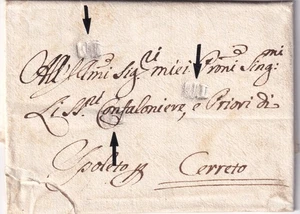 All' Ill.mi Sig.ri miei Proni Sing.mi
Li SS.ri Confaloniere, e Priori di
Spoleto p Cerreto